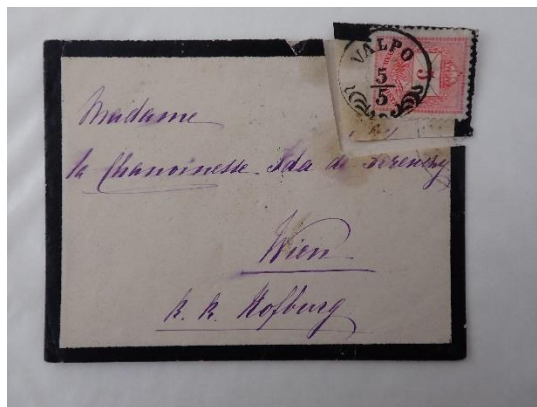 VALPO
5
5
5
Madame
la Chanoinesse Ida de Ferenczy
Wien
k. k. Hofburg